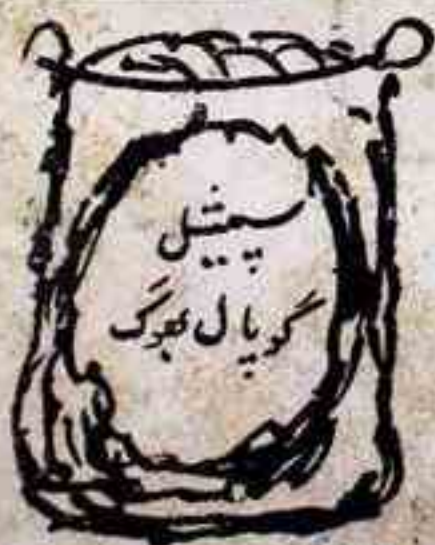 سپیشل
گوپال بھوگ